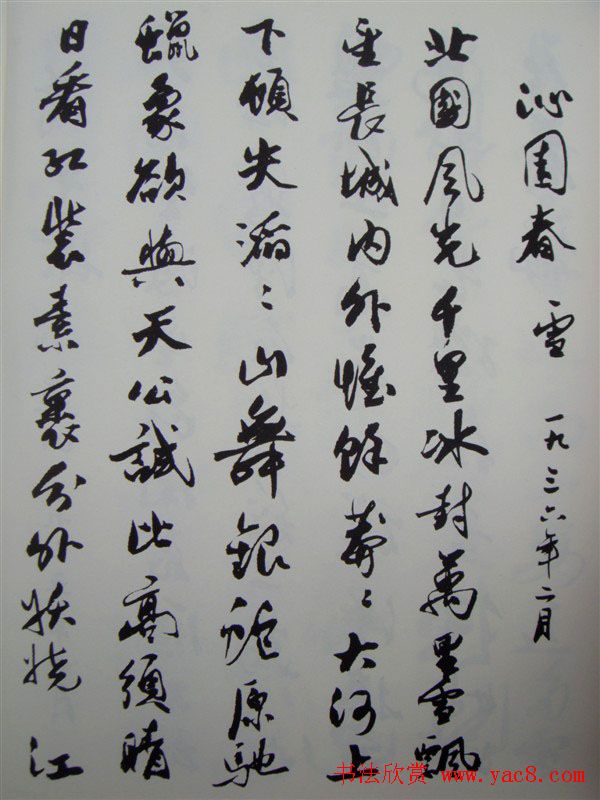 沁園春 雪 一九三六年二月
北國风光千里冰封萬里雪飄
望長城内外惟餘莽〻大河上
下頓失滔〻山舞銀蛇原馳
蠟象欲與天公試比高須晴
日看红裝素裹分外妖娆 江
书法欣赏 www.yac8.com